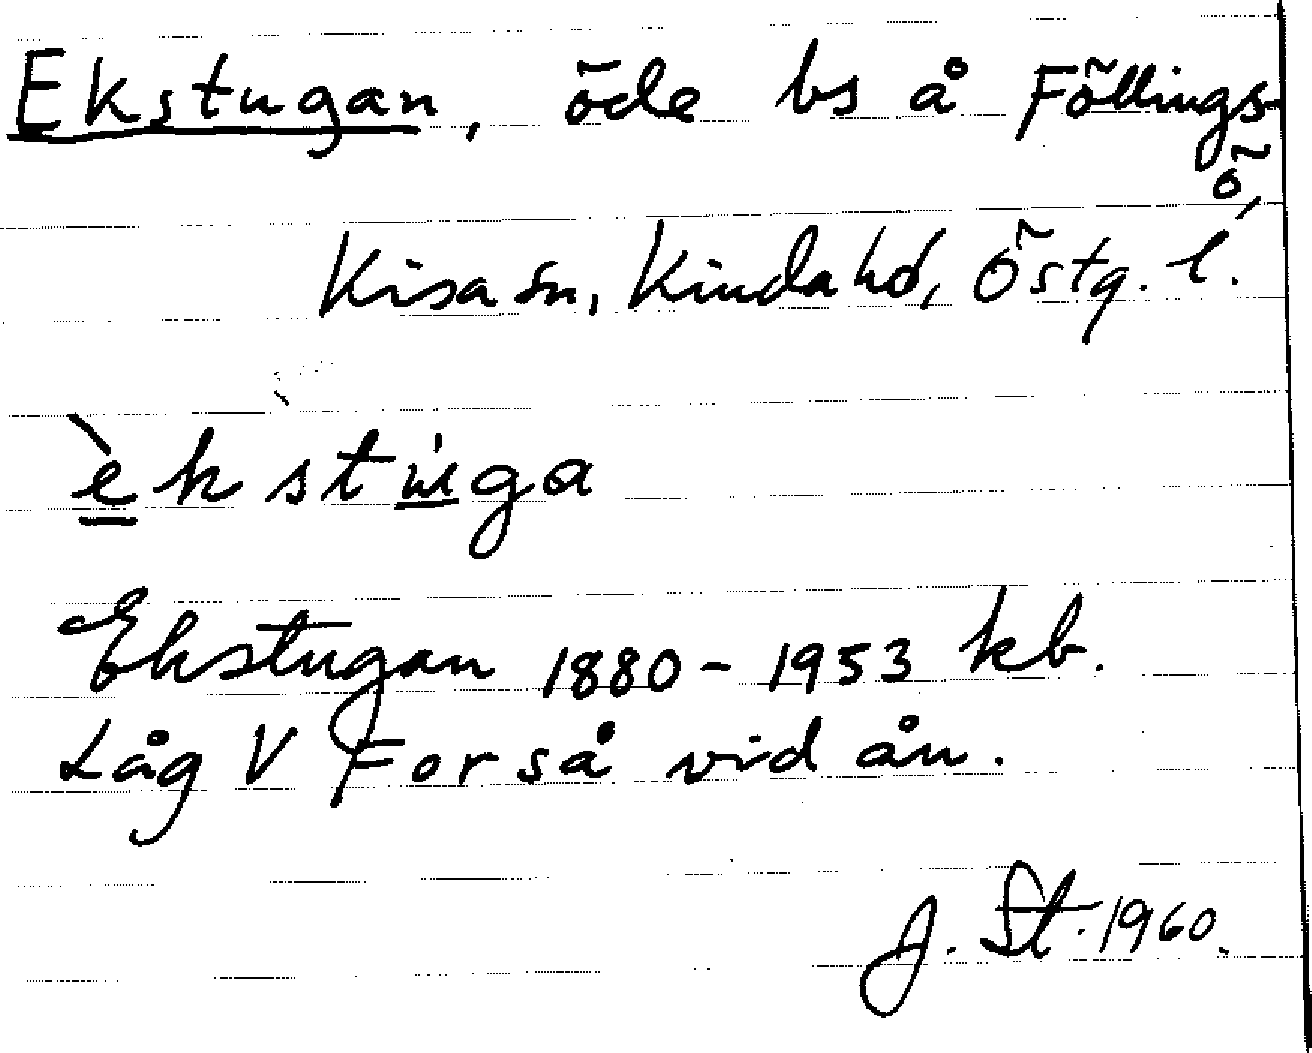 Ekstugan, öde bs å Föllings-
ö,
Kisa sn, Kinda hd, Östg. l.
èkstu̇ga
Ekstugan 1880-1953 kb.
Låg V Forså vid ån.
J. St. 1960.